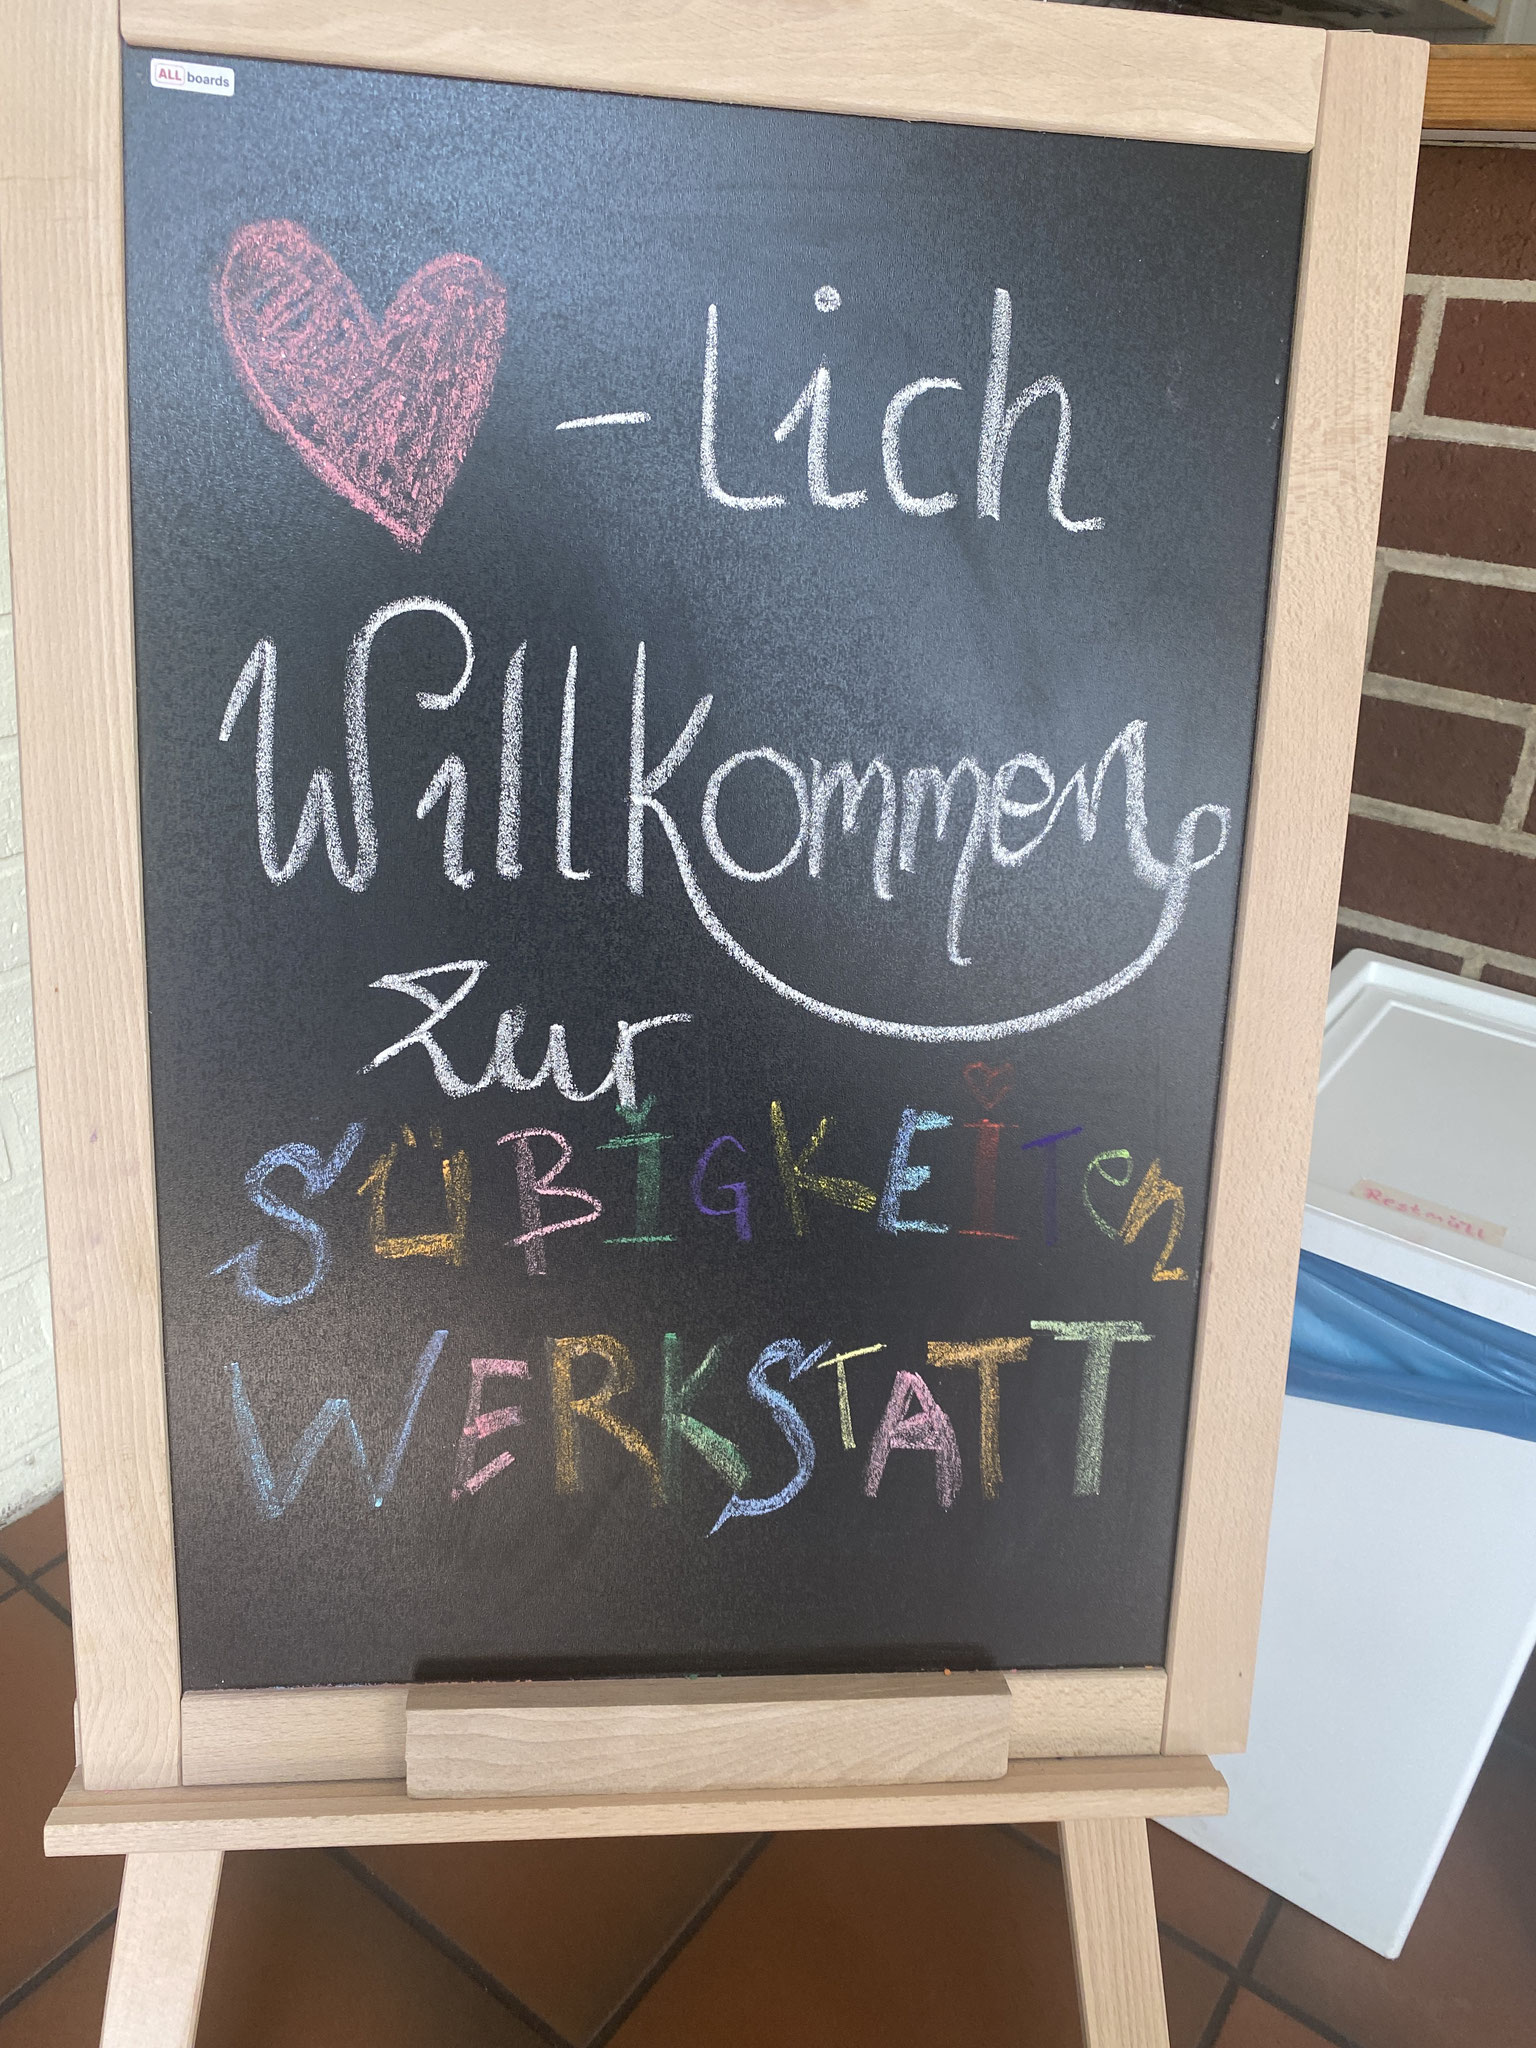 ALL boards
❤-lich
Willkommen
zur
SÜßIGKEITen
WERKSTATT
Restmüll